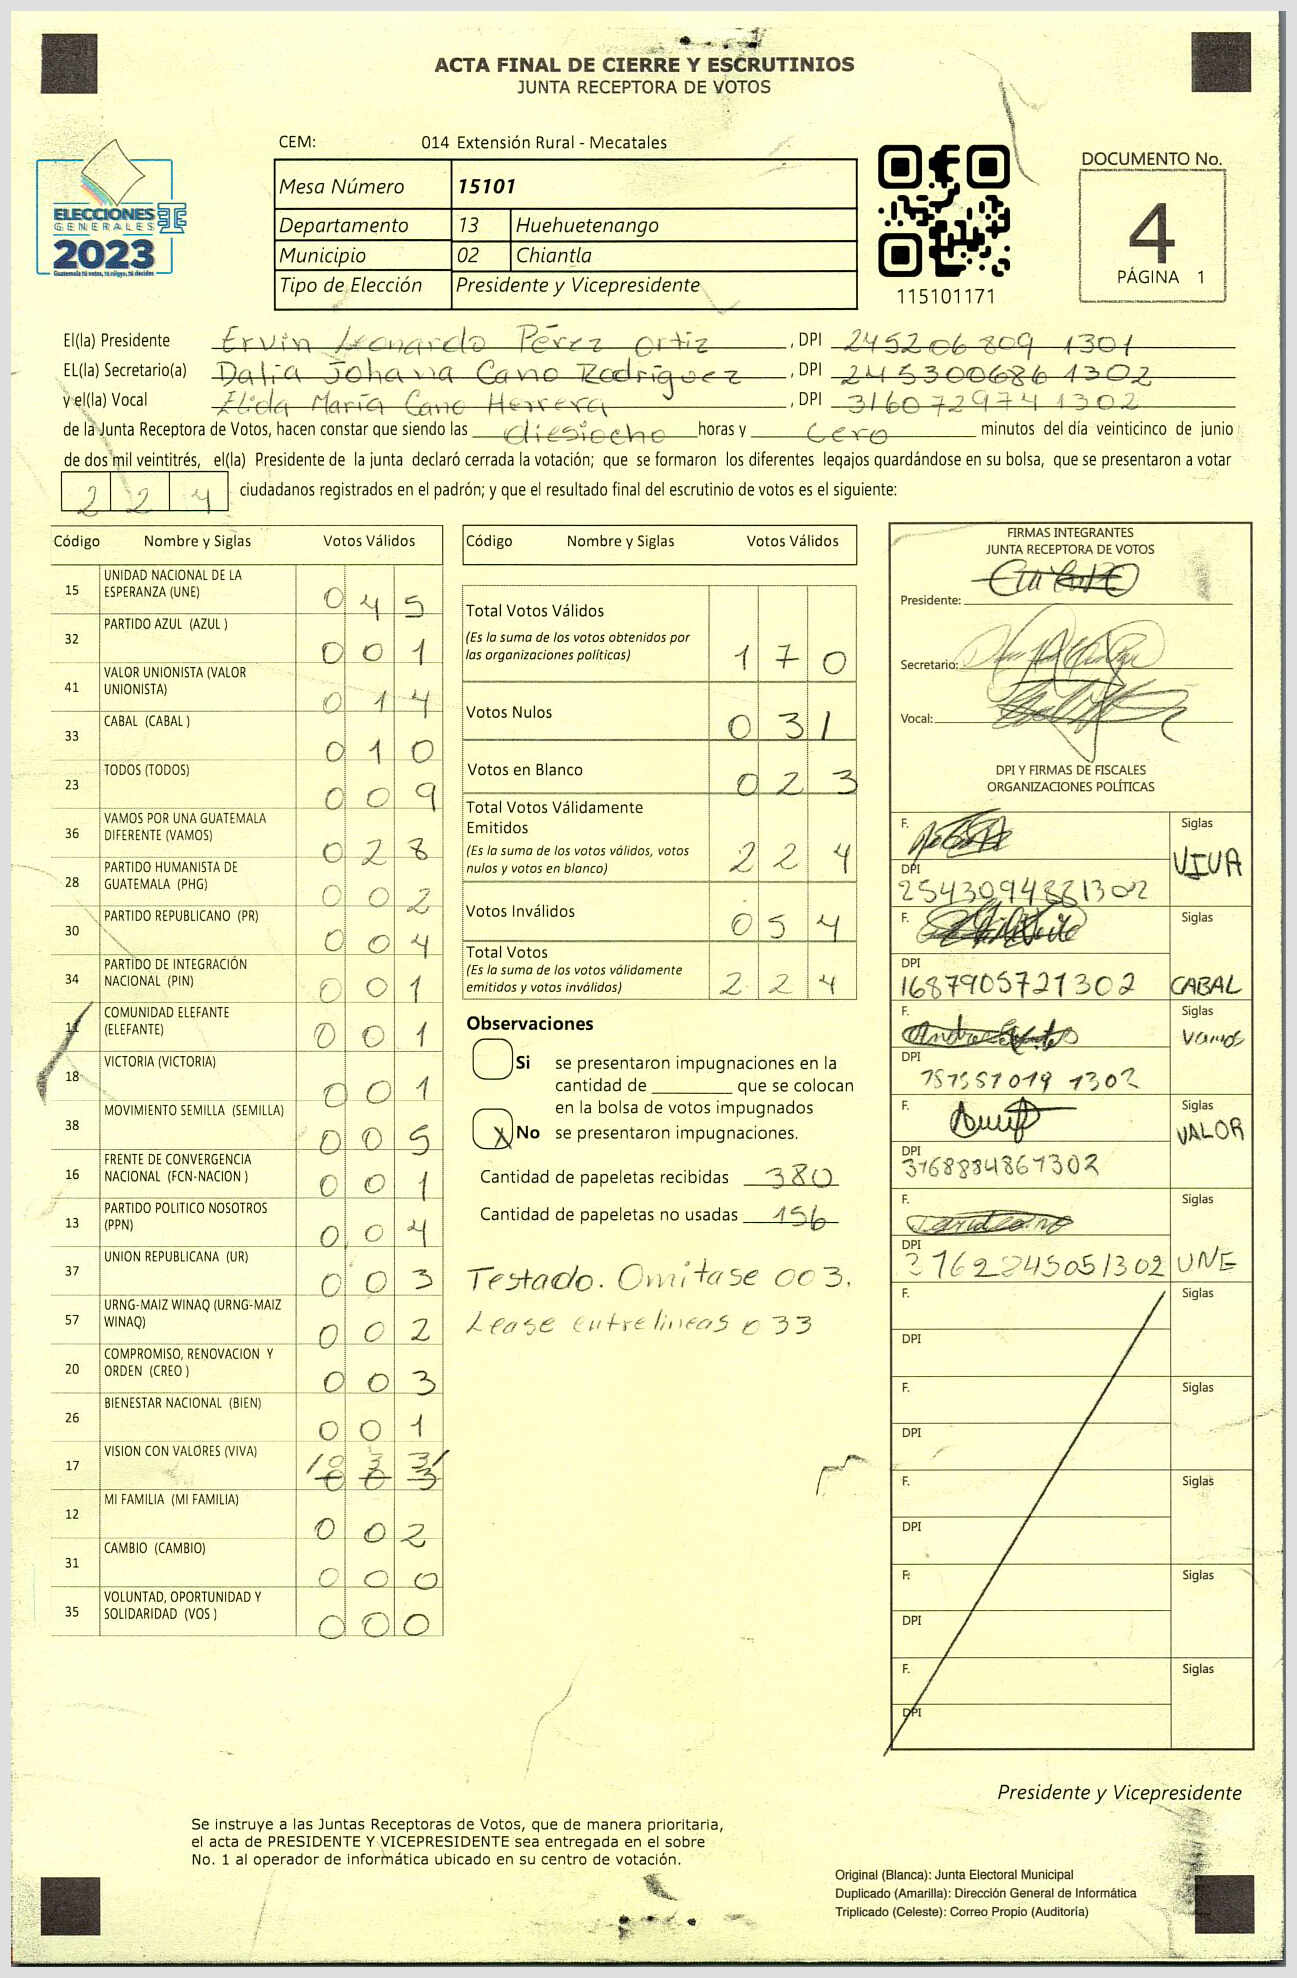 ACTA FINAL DE CIERRE Y ESCRUTINIOS
JUNTA RECEPTORA DE VOTOS
ELECCIONES
GENERALES
2023
Guatemala tú votas, tú eliges, tú decides
CEM: 014 Extensión Rural - Mecatales
Mesa Número 15101
Departamento 13 Huehuetenango
Municipio 02 Chiantla
Tipo de Elección Presidente y Vicepresidente
115101171
DOCUMENTO No.
4
PÁGINA 1
El(la) Presidente Ervin Leonardo Pérez Ortiz, DPI 245206809 1301
EL(la) Secretario(a) Dalia Johana Cano Rodríguez, DPI 245300686 1302
y el(la) Vocal Elida María Cano Herrera, DPI 316072974 1302
de la Junta Receptora de Votos, hacen constar que siendo las diesiocho horas y cero minutos del día veinticinco de junio
de dos mil veintitrés, el(la) Presidente de la junta declaró cerrada la votación; que se formaron los diferentes legajos guardándose en su bolsa, que se presentaron a votar
224 ciudadanos registrados en el padrón; y que el resultado final del escrutinio de votos es el siguiente:
Código Nombre y Siglas Votos Válidos
15 UNIDAD NACIONAL DE LA ESPERANZA (UNE) 045
32 PARTIDO AZUL (AZUL ) 001
41 VALOR UNIONISTA (VALOR UNIONISTA) 014
33 CABAL (CABAL ) 010
23 TODOS (TODOS) 009
36 VAMOS POR UNA GUATEMALA DIFERENTE (VAMOS) 028
28 PARTIDO HUMANISTA DE GUATEMALA (PHG) 002
30 PARTIDO REPUBLICANO (PR) 004
34 PARTIDO DE INTEGRACIÓN NACIONAL (PIN) 001
11 COMUNIDAD ELEFANTE (ELEFANTE) 001
18 VICTORIA (VICTORIA) 001
38 MOVIMIENTO SEMILLA (SEMILLA) 005
16 FRENTE DE CONVERGENCIA NACIONAL (FCN-NACION ) 001
13 PARTIDO POLITICO NOSOTROS (PPN) 004
37 UNION REPUBLICANA (UR) 003
57 URNG-MAIZ WINAQ (URNG-MAIZ WINAQ) 002
20 COMPROMISO, RENOVACION Y ORDEN (CREO ) 003
26 BIENESTAR NACIONAL (BIEN) 001
17 VISION CON VALORES (VIVA) /033/ 003
12 MI FAMILIA (MI FAMILIA) 002
31 CAMBIO (CAMBIO) 000
35 VOLUNTAD, OPORTUNIDAD Y SOLIDARIDAD (VOS ) 000
Código Nombre y Siglas Votos Válidos
Total Votos Válidos 170
(Es la suma de los votos obtenidos por
las organizaciones políticas)
Votos Nulos 031
Votos en Blanco 023
Total Votos Válidamente
Emitidos 224
(Es la suma de los votos válidos, votos
nulos y votos en blanco)
Votos Inválidos 054
Total Votos 224
(Es la suma de los votos válidamente
emitidos y votos inválidos)
Observaciones
Si se presentaron impugnaciones en la
cantidad de ________ que se colocan
en la bolsa de votos impugnados
X No se presentaron impugnaciones.
Cantidad de papeletas recibidas 380
Cantidad de papeletas no usadas 156
Testado. Omitase 003.
Lease entrelineas 033
FIRMAS INTEGRANTES
JUNTA RECEPTORA DE VOTOS
Presidente:
Secretario:
Vocal:
DPI Y FIRMAS DE FISCALES
ORGANIZACIONES POLÍTICAS
F. Siglas
DPI VIVA
2543094881302
F. Siglas
DPI
1687905721302 CABAL
F. Siglas
DPI Vamos
1302
F. Siglas
DPI VALOR
3168884861302
F. Siglas
DPI
3162245051302 UNE
F. Siglas
DPI
F. Siglas
DPI
F. Siglas
DPI
F. Siglas
DPI
F. Siglas
DPI
Presidente y Vicepresidente
Se instruye a las Juntas Receptoras de Votos, que de manera prioritaria,
el acta de PRESIDENTE Y VICEPRESIDENTE sea entregada en el sobre
No. 1 al operador de informática ubicado en su centro de votación.
Original (Blanca): Junta Electoral Municipal
Duplicado (Amarilla): Dirección General de Informática
Triplicado (Celeste): Correo Propio (Auditoría)